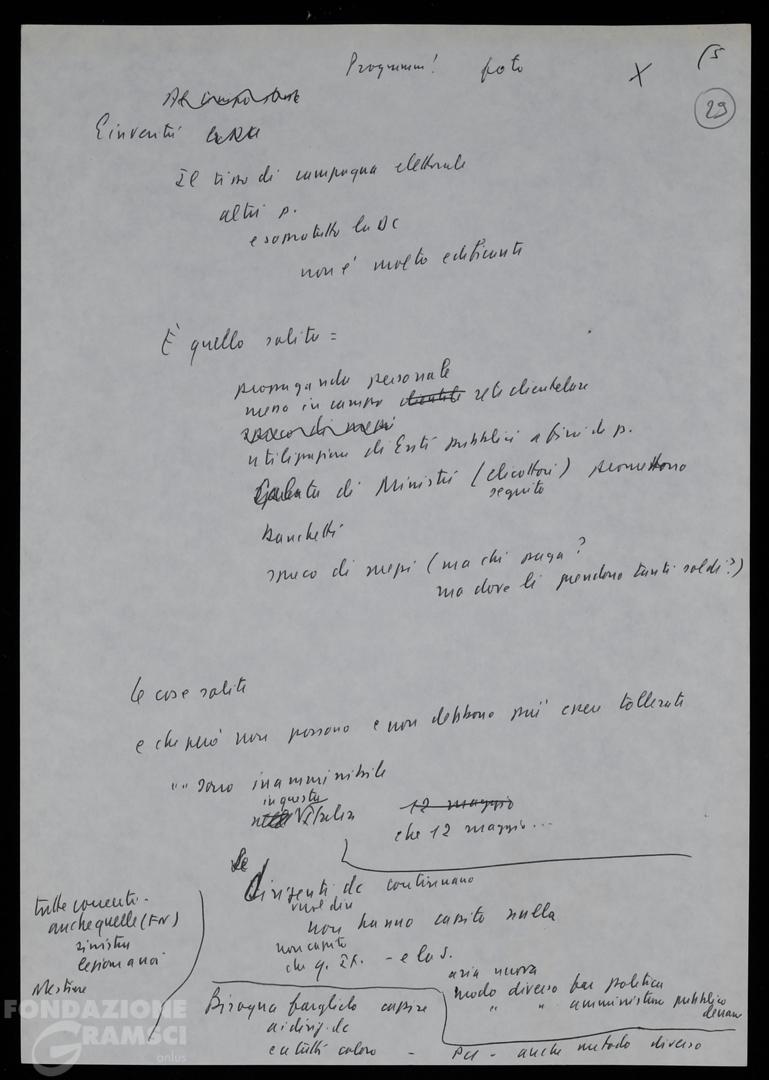 Programmi! foto
X
15
29
E inventri
Il tipo di campagna elettorale
altri p.
e soprattutto la DC
non è molto edificante
È quello solito =
propaganda personale
messa in campo rete clientelare
spreco di mezzi
utilizzazione di Enti pubblici a fini di p.
di Ministri (elicotteri) promettono
seguito
Banchetti
spreco di mezzi (ma chi paga?
ma dove li prendono tanti soldi?)
le cose solite
e che però non possono e non debbono più essere tollerate
"" sono inammissibile
in questa
Italia
12 maggio
che 12 maggio...
Se
dirigenti dc continuano
vuol dire
non hanno capito nulla
non capito
che q. It. - e la s.
tutte correnti -
anche quelle (FN)
sinistra
lezioni a noi
Mestiere
aria nuova
modo diverso far politica
" " amministrare pubblico
denaro
Bisogna farglielo capire
ai dirig. dc
e a tutti coloro -
PCI - anche metodo diverso
FONDAZIONE
GRAMSCI
onlus